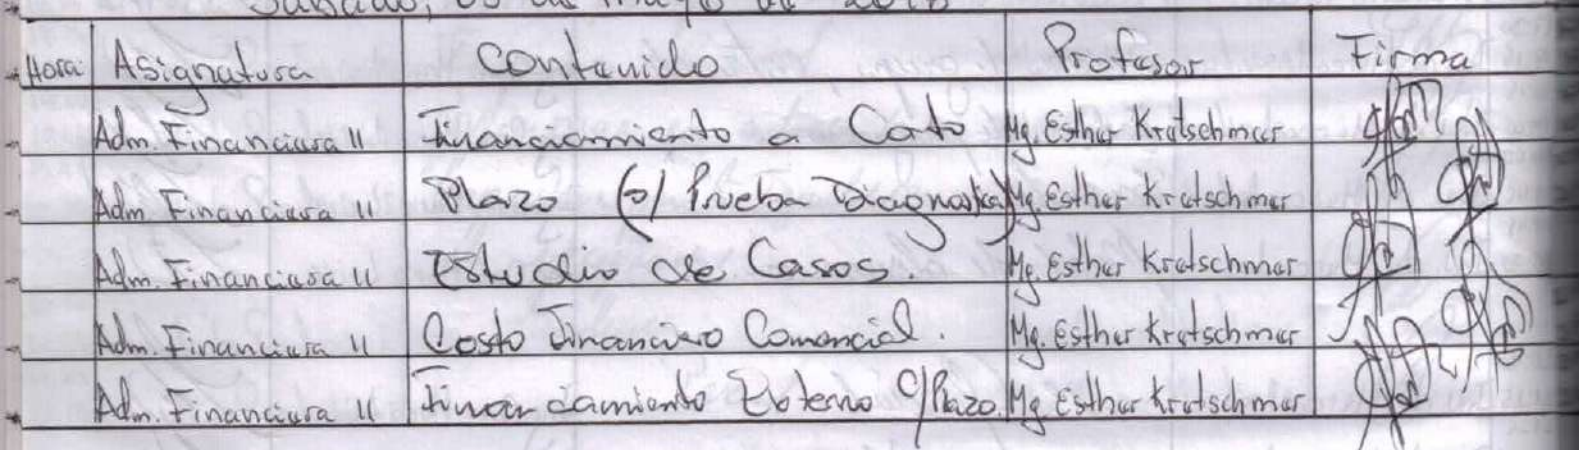 Sábado, 05 de mayo de 2018
Hora Asignatura Contenido Profesor Firma
Adm. Financiera II Financiamiento a Corto Mg. Esther Kretschmer
Adm. Financiera II Plazo (s/ Prueba Diagnostica) Mg. Esther Kretschmer
Adm. Financiera II Estudio de Casos. Mg. Esther Kretschmer
Adm. Financiera II Costo Financiero Comercial. Mg. Esther Kretschmer
Adm. Financiera II Financiamiento Externo C/Plazo. Mg. Esther Kretschmer